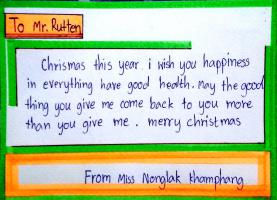 To Mr. Rutten
Chrismas this year. i wish you happiness
in everything have good health. may the good
thing you give me come back to you more
than you give me. merry christmas
From Miss Nonglak Khamphang